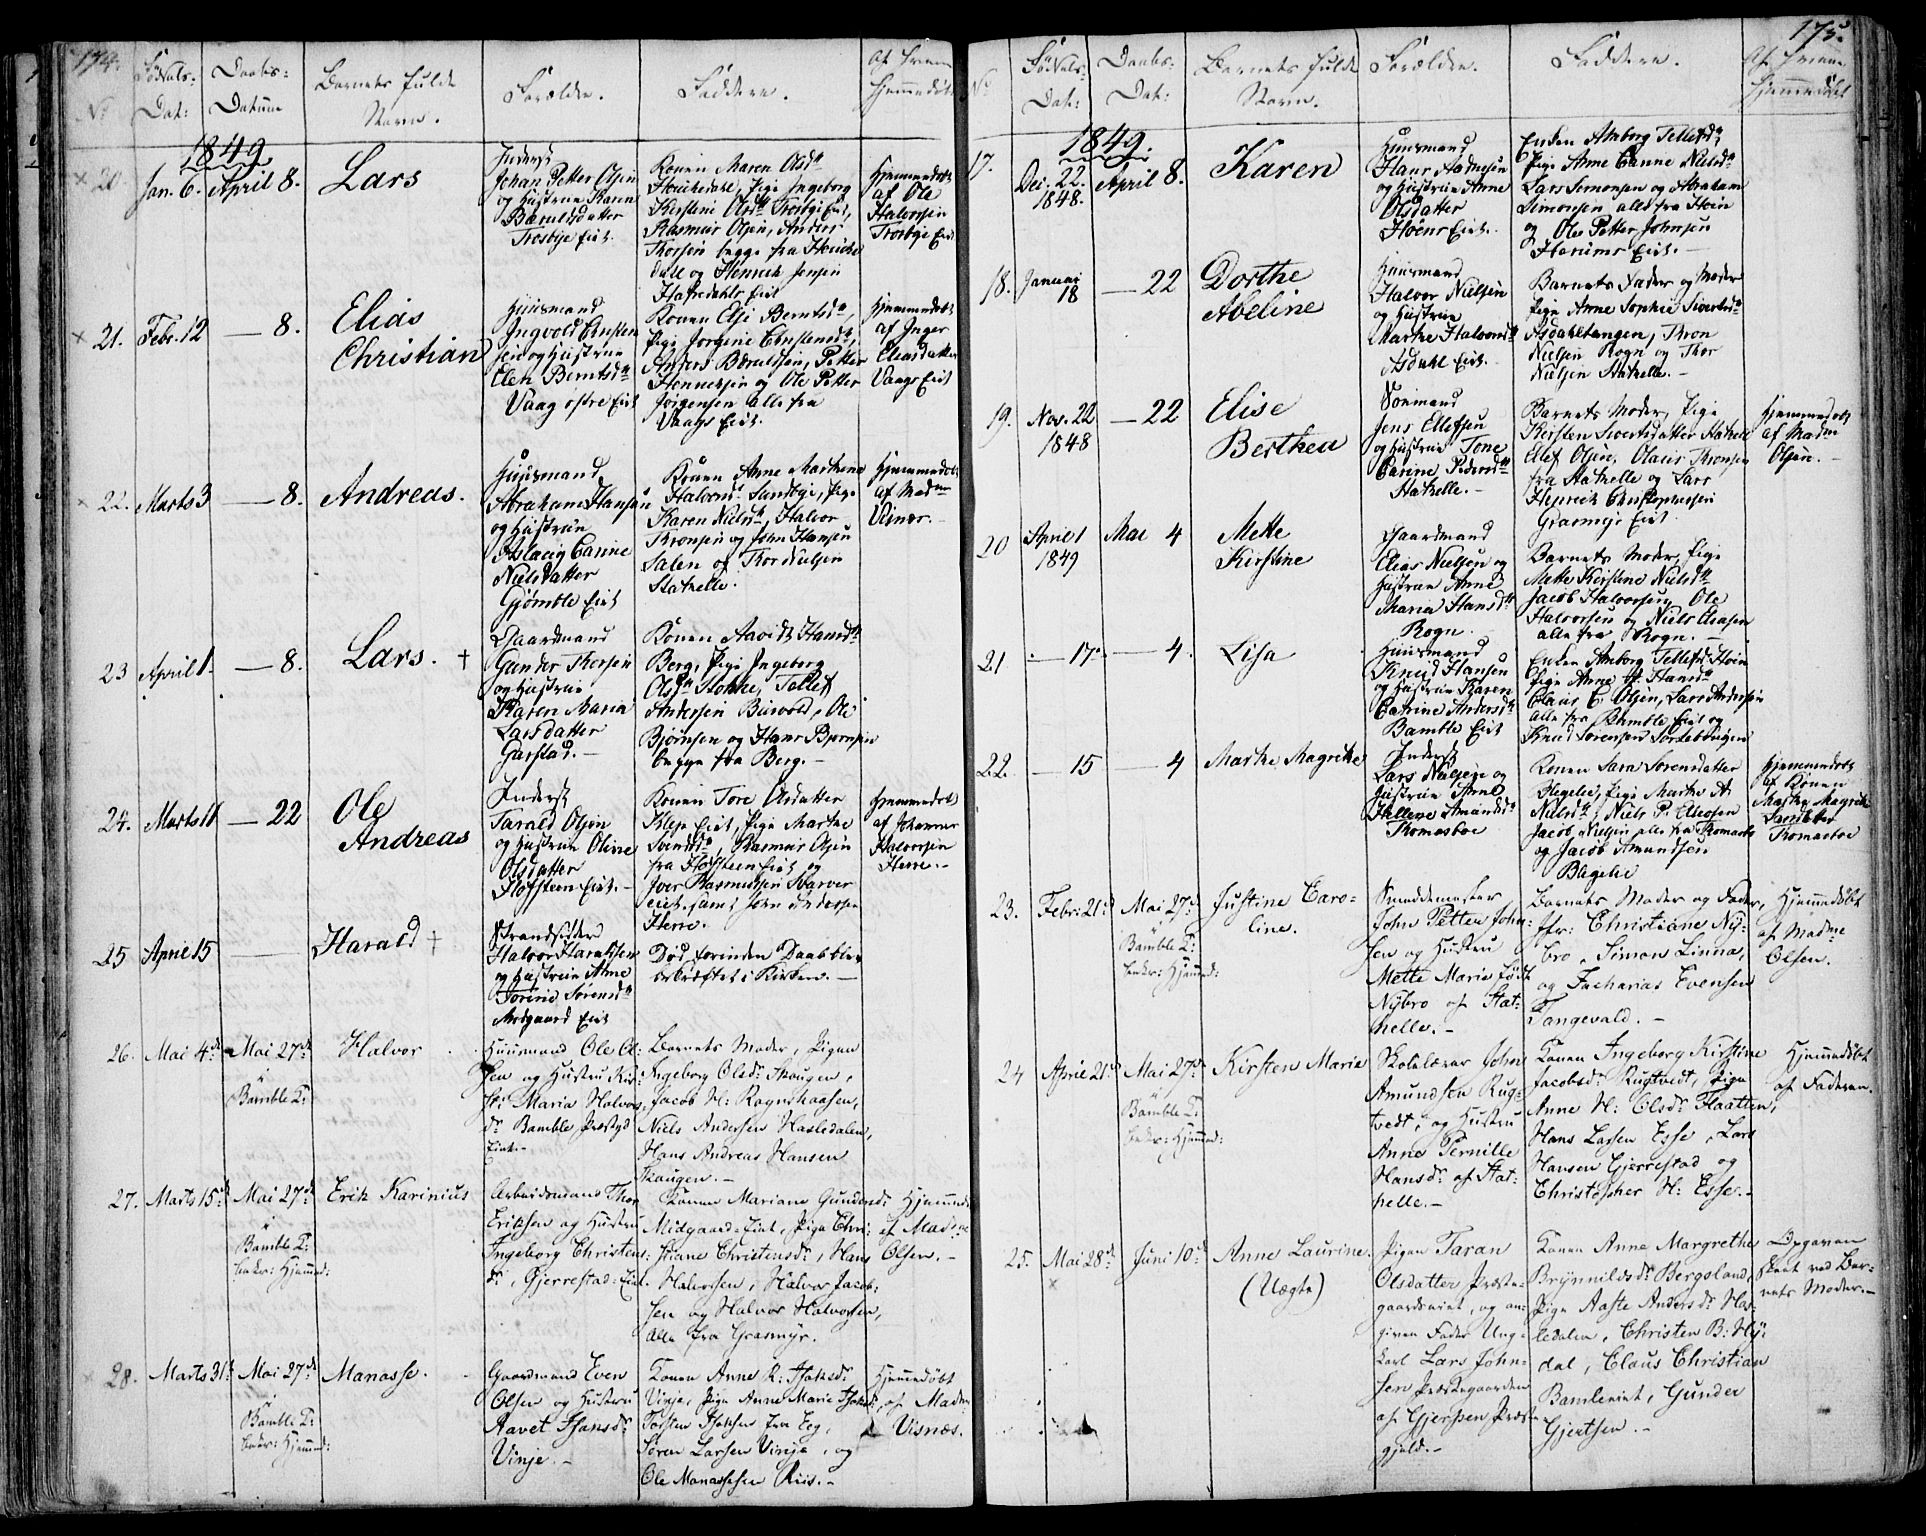 174.
No
Fødsels-
Dat:
Daabs-
Datum
Barnets fulde
Navn.
Forældre.
Faddere.
Af hvem
hjemmedøbt
1849
20.
Jan. 6.
April 8.
Lars
Inderst
Johan Petter Olsen
og Hustrue Karen
Trosbye Eiet.
Konen Maren Olsdtr
Pige Ingeborg
Kirstine Olsdtr Trosbye Eiet,
Rasmus Olsen, Anders
Thorsen begge fra
og Henrik Jensen
Hafsedahls Eiet
Hjemmedøbt
af Ole
Halvorsen
Trosbye Eiet
21.
Febr. 12
— 8.
Elias
Christian
Huusmand
Ingvold
sen og Hustrue
Elen Berntsdtr
Vaag østre Eiet
Konen Elsi Berntsdtr,
Pige Jorgine
Anders Petter
og Ole Petter
Jørgensen alle fra
Vaags Eiet.
Hjemmedøbt
af Inger
Eliasdatter
Vaags Eiet
22.
Marts 3
— 8.
Andreas.
Huusmand
Abraham Hansen
og Hustrue
Aslaug Carine
Nielsdatter
Gjømble Eiet
Konen Anne Marthea
Halvorsdtr Sundbye, Pige
Karen Nielsdtr, Halvor
Thronsen og John Hansen
Salen og Thor Nielsen
Stathelle.
Hjemmedøbt
af Madme
Visnæs.
23
April 1.
— 8.
Lars. †
Gaardmand
Gunder Thorsen
og Hustrue
Karen Maria
Larsdatter
Garstad.
Konen Hansdtr
Berg, Pige Ingeborg
Olsdtr Stokke, Tellef
Andersen Ole
Bjørnsen og Hans Bjørnsen
begge fra Berg.
24.
Marts 11
— 22
Ole
Andreas
Inderst
Tarald Olsen
og Hustrue Oline
Olsdatter
Hofsteen Eiet.
Konen Tore Olsdatter
Kleje Eiet, Pige Marthe
Rasmus Olsen
fra Hofsteen Eiet og
Iver Rasmussen
Eiet samt John Andersen
Herre.
Hjemmedøbt
af Johannes
Halvorsen
Herre.
25
April 15
—
Harald †
Strandsidder
Halvor Haraldsen
og Hustrue Anne
Torine Sørensdtr
Modgaard Eiet
Død forinden Daab blev
bekræftet i Kirken.
26.
Mai 4de
Mai 27de
i
Bamble K:
Halvor
Huusmand Ole Ol-
sen og Hustru Kir-
sti Maria Halvors-
dr Bamble Præstgd
Eiet.
Barnets Moder, Pigen
Ingeborg Olsdr Skougen,
Jacob H: Rognshaasen,
Niels Andersen Hasledalen,
Hans Andreas Hansen
Skougen.
27.
Marts 15de
Mai 27de
i
Bamble K:
bekr: Hjemmed:
Erik Karinius
Arbeidsmand Thor
Eriksen og Hustru
Ingeborg Christens-
dr, Gjerrestad-Eiet.
Konen Mariane Gundersdr
Midgaards-Eiet, Pige Chri-
stiane Christensdr, Hans
Halvorsen, Halvor Jacob-
sen og Halvor Halvorsen,
alle fra Grasmyr.
Hjemmed:
af Madme
Olsen.
28.
Marts 31te
Mai 27de
i
Bamble K:
bekr: Hjemmed:
Manasse.
Gaardmand Even
Olsen og Hustru
Aavet Isaksdr
Vinje.
Konen Anne K: Isaksdr
Vinje, Pige Anne Marie Isaksdr,
Torsten Isaksen fra Eeg,
Søren Larsen Vinje, og
Ole Manassesen Riis.
Hjemmedøbt
af Madme
Visnæs.
175.
No
Fødsels-
Dat:
Daabs-
Dat:
Barnets fulde
Navn.
Forældre.
Faddere.
Af hvem
hjemmedøbt
1849.
17.
Dec. 22.
1848.
April 8.
Karen
Huusmand
Hans Aamesen
og Hustrue Anne
Olsdatter
Hoens Eiet.
Enken Amborg Tellefsdtr,
Pige Anne Canne Nielsdtr
Lars Simonsen og Abraham
Simonsen alle fra Hoen
og Ole Petter Johnsen
Eiet.
18.
Januar
18
— 22
Dorthe
Abeline
Huusmand
Halvor Nielsen
og Hustrue
Marthe Halvorsdtr
Asdahl Eiet.
Barnets Fader og Moder
Pige Anne Sophie Sivertsdtr
Asdahltangen, Thron
Nielsen Rogn og Thor
Nielsen Stathelle.
19.
Nov. 22
1848
— 22
Elise
Berthea
Sømand
Jens Ellefsen
og Hustrue Tone
Carine Pedersdtr
Stathelle.
Barnets Moder, Pige
Kirsten Sivertsdatter Stathelle
Ellef Olsen, Olaus Thronsen
fra Stathelle og Lars
Henrick Christophersen
Grasmyr Eiet.
Hjemmedøbt
af Madme
Olsen.
20
April 1
1849
Mai 4
Mette
Kirstine
Gaardmand
Elias Nielsen og
Hustrue Anne
Maria Hansdtr
Rogn.
Barnets Moder, Pige
Mette Kirstine Nielsdtr
Jacob Halvorsen, Ole
Halvorsen og Niels Eliasen
alle fra Rogn.
21
— 17
— 4.
Lisa
Huusmand
Knud Hansen
og Hustrue Karen
Catrine Andersdtr
Bamble Eiet
Enken Amborg Tellefsd: Hoen
Pige Anne H. Hansdtr
Claus C. Olsen, Lars Andersen
alle fra Bamble Eiet og
Knud Sørensen
22.
— 15
— 4
Marthe Magrethe
Inderst
Lars Nielsen og
Hustrue Anne
Hellene Amundsdtr
Thomasboe
Konen Sara Sørensdatter
Blegelie, Pige Marthe A
Nielsdtr, Niels P. Ellefsen
Jacob Nielsen alle fra Thomasboe
og Jacob Amundsen
Blegelie
Hjemmedøbt
af Konen
Marthe Magrethe
Larsdatter
Thomasboe
23.
Febr: 21de
Mai 27de
i
Bamble K:
bekr: Hjemmed:
Justine Caro-
line.
Smeddemester
John Petter John-
sen og Hustru
Mette Marie født
Nybro af Stat-
helle.
Barnets Moder og Fader,
Jfr: Christiane Ny-
bro, Simon Linna,
og Zacharias Evensen
Tangevald.
Hjemmedøbt
af Madme
Olsen.
24
April 21de
Mai 27de
i
Bamble K:
bekr: Hjemmed:
Kirsten Maria
Skolelærer John
Amundsen Rug-
tvedt, og Hustru
Anne Pernille
Hansdr af Stat-
helle.
Konen Ingeborg Kirstine
Jacobsdr Rugtvedt, Pige
Anne H: Olsdr Flaatten,
Hans Larsen Esse, Lars
Hansen Gjerrestad og
Christopher H: Esse.
Hjemmedøbt
af Faderen.
25.
Mai 28de
Juni 10de
Anne Laurine.
(Uægte)
Pigen Taran
Olsdatter Præste-
gaardseiet, og an-
given Fader Ung-
karl Lars John-
sen Præstegaarden
af Gjerpen Præste-
gjeld.
Konen Anne Margrethe
Brynnildsdr Bergsland,
Pige Aaste Andersdr Has-
ledalen, Christen B: Hy-
dal, Claus Christian
Bambleeiet, Gunder
Gjertsen.
Opgaven
skeet ved Bar-
nets Moder.